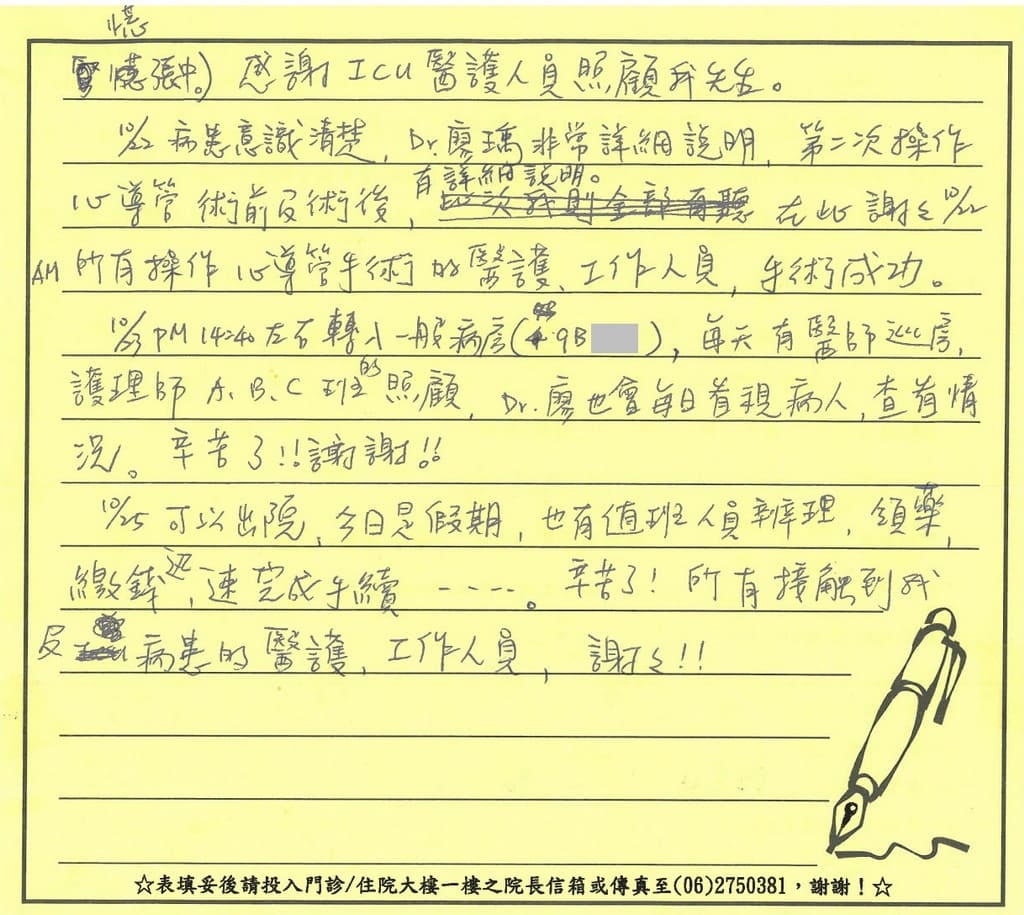 慌
慌張中。) 感謝 ICU 醫護人員照顧我先生。
10/22 病患意識清楚, Dr.廖瑀非常詳細說明, 第二次操作
有詳細說明。
心導管 術前及術後, 在此謝々 10/22
AM 所有操作心導管手術的醫護、工作人員, 手術成功。
10/23 PM 14:40 左右轉入一般病房( 9B ), 每天有醫師巡房,
護理師 A、B、C 班的照顧, Dr.廖也會每日看視病人, 查看情
況。辛苦了!!謝謝!!
10/25 可以出院, 今日是假期, 也有值班人員辦理, 領藥,
繳錢, 迅速完成手續 ----。辛苦了! 所有接触到我
及 病患的醫護、工作人員, 謝々!!
☆表填妥後請投入門診/住院大樓一樓之院長信箱或傳真至(06)2750381，謝謝！☆